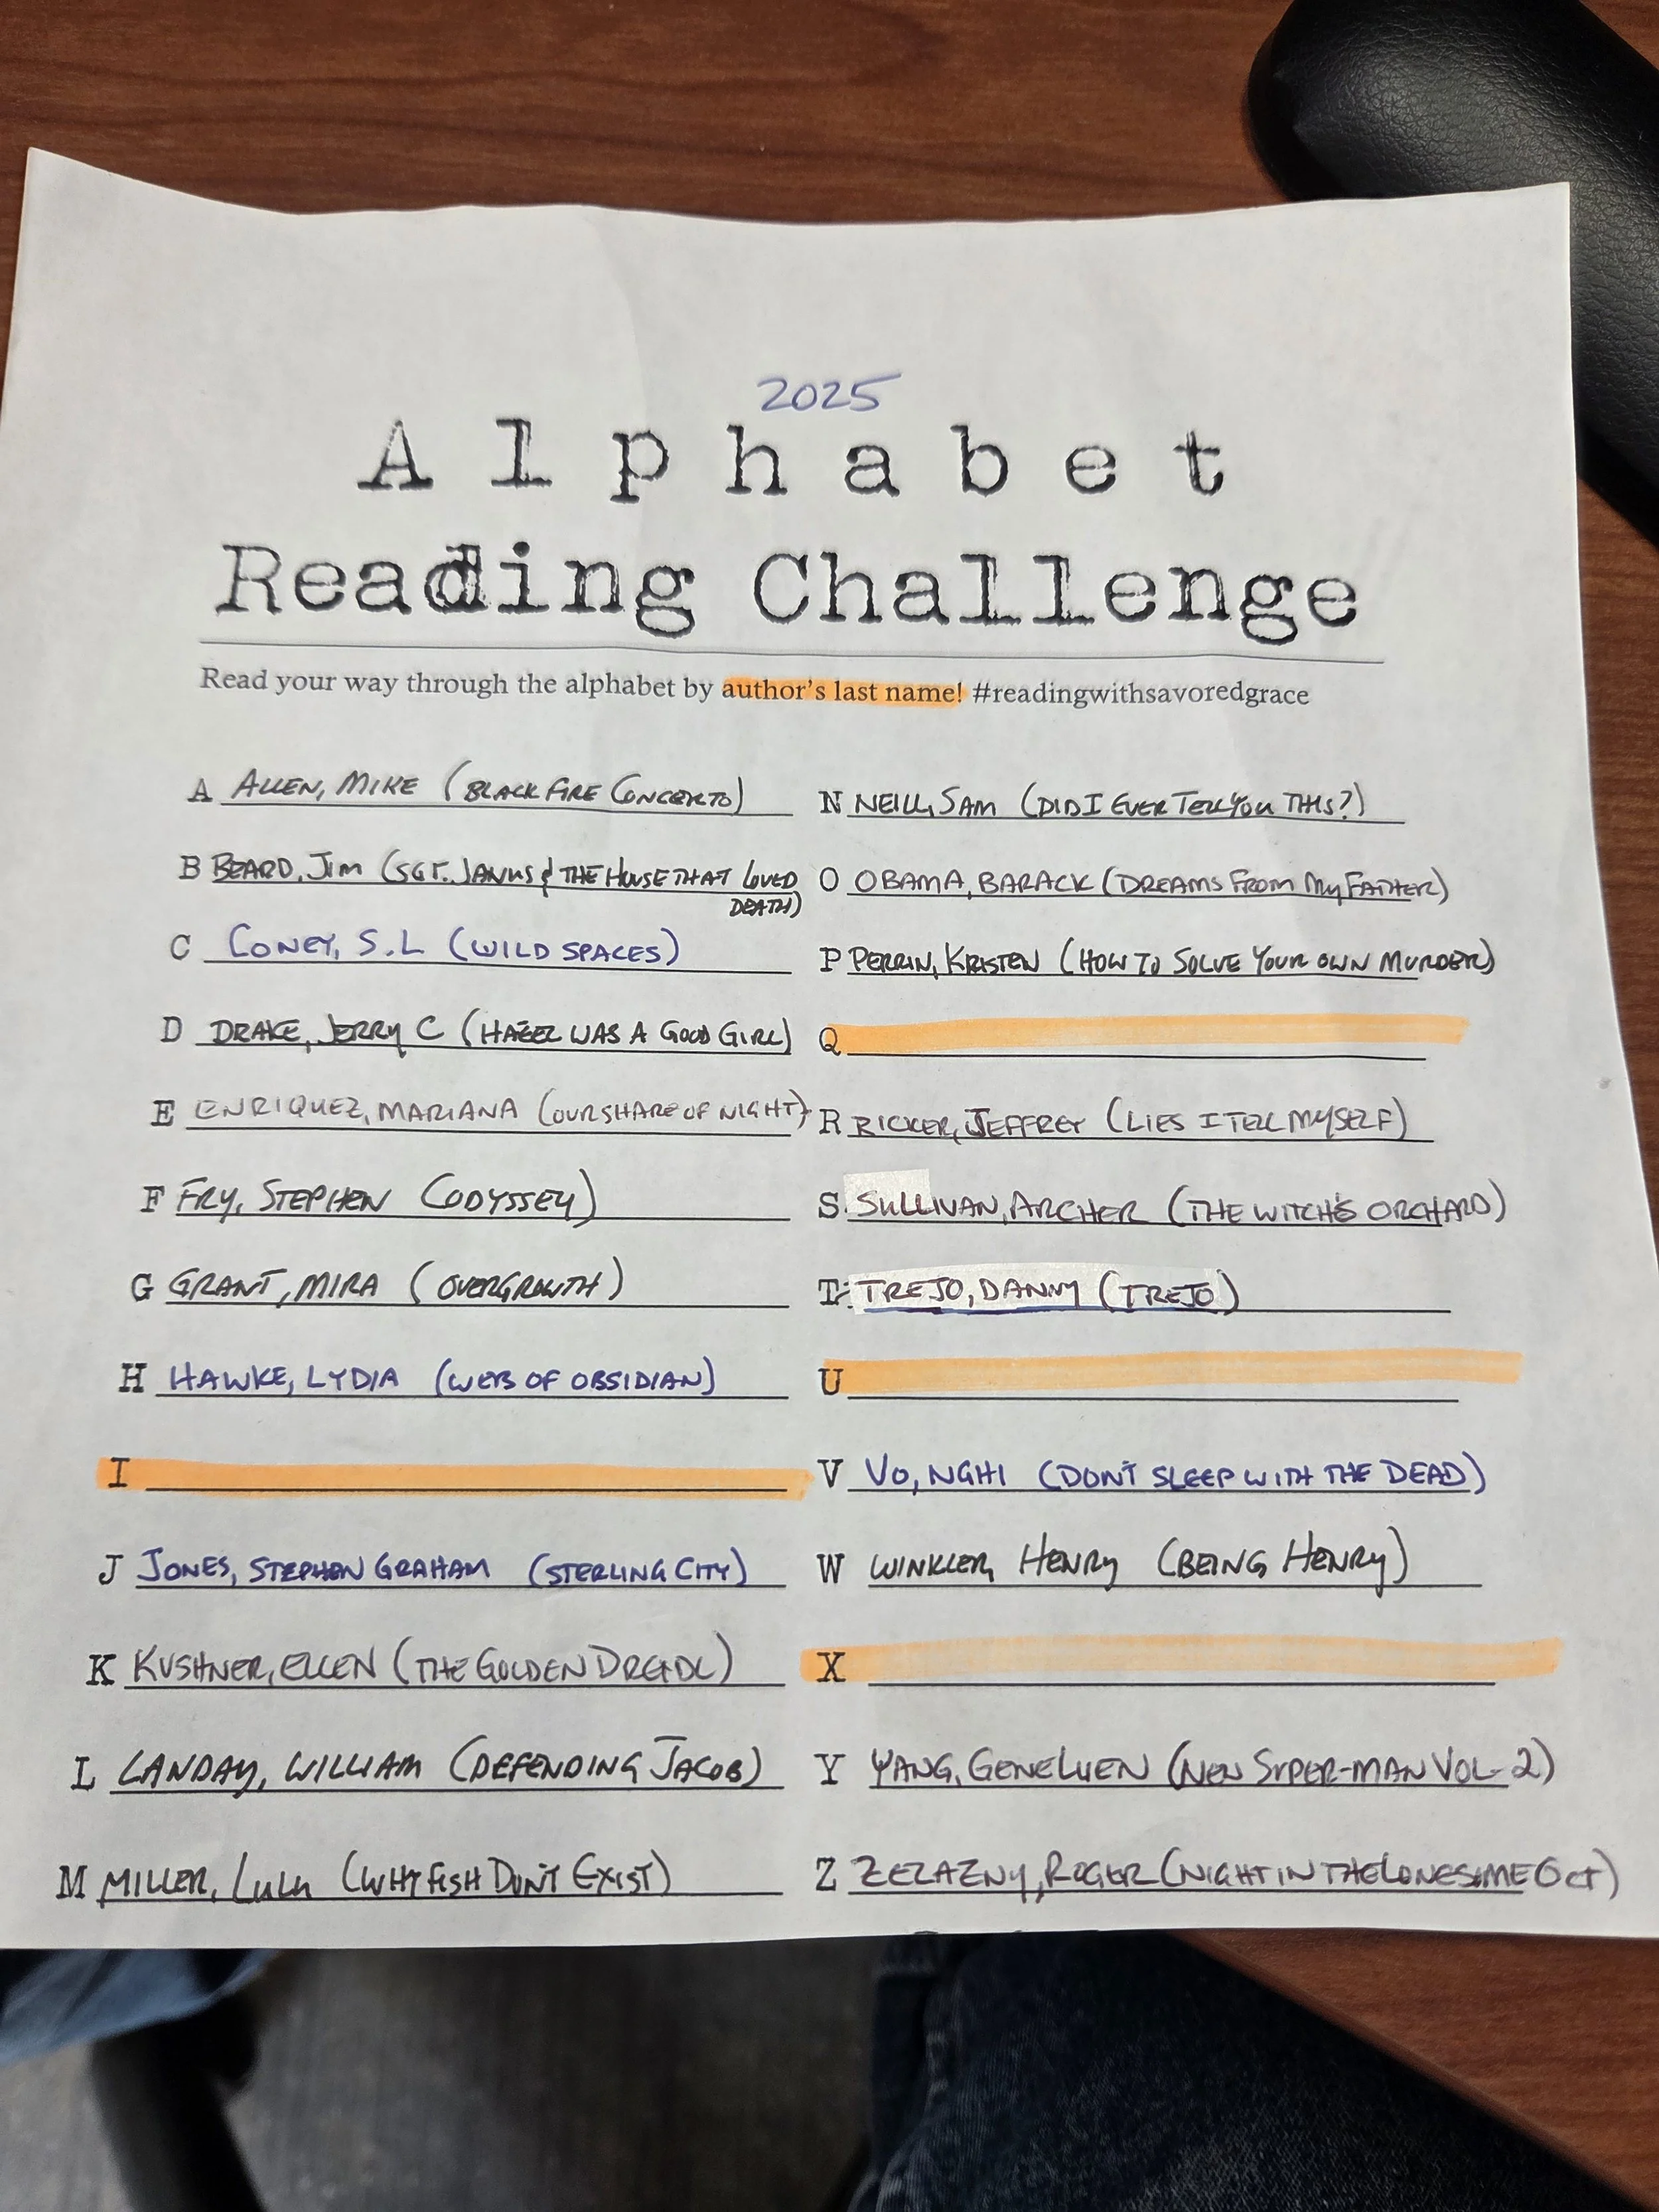 2025
Alphabet
Reading Challenge
Read your way through the alphabet by author's last name! #readingwithsavoredgrace
A ALLEN, MIKE (BLACK FIRE CONCERTO)
B BEARD, JIM (SGT. JANUS & THE HOUSE THAT LOVED
DEATH)
C CONEY, S.L (WILD SPACES)
D DRAKE, JERRY C (HAZEL WAS A GOOD GIRL)
E ENRIQUEZ, MARIANA (OUR SHARE OF NIGHT)
F FRY, STEPHEN (ODYSSEY)
G GRANT, MIRA (OVERGROWTH)
H HAWKE, LYDIA (WEB OF OBSIDIAN)
I
J JONES, STEPHEN GRAHAM (STERLING CITY)
K KUSHNER, ELLEN (THE GOLDEN DREYDL)
L LANDAY, WILLIAM (DEFENDING JACOB)
M MILLER, LULU (WHY FISH DON'T EXIST)
N NEILL, SAM (DID I EVER TELL YOU THIS?)
O OBAMA, BARACK (DREAMS FROM MY FATHER)
P PERRIN, KRISTEN (HOW TO SOLVE YOUR OWN MURDER)
Q
R RICKER, JEFFREY (LIES I TELL MYSELF)
S SULLIVAN, ARCHER (THE WITCH'S ORCHARD)
T TREJO, DANNY (TREJO)
U
V VO, NGHI (DON'T SLEEP WITH THE DEAD)
W WINKLER, HENRY (BEING HENRY)
X
Y YANG, GENE LUEN (NEW SUPER-MAN VOL. 2)
Z ZELAZNY, ROGER (NIGHT IN THE LONESOME OCT)